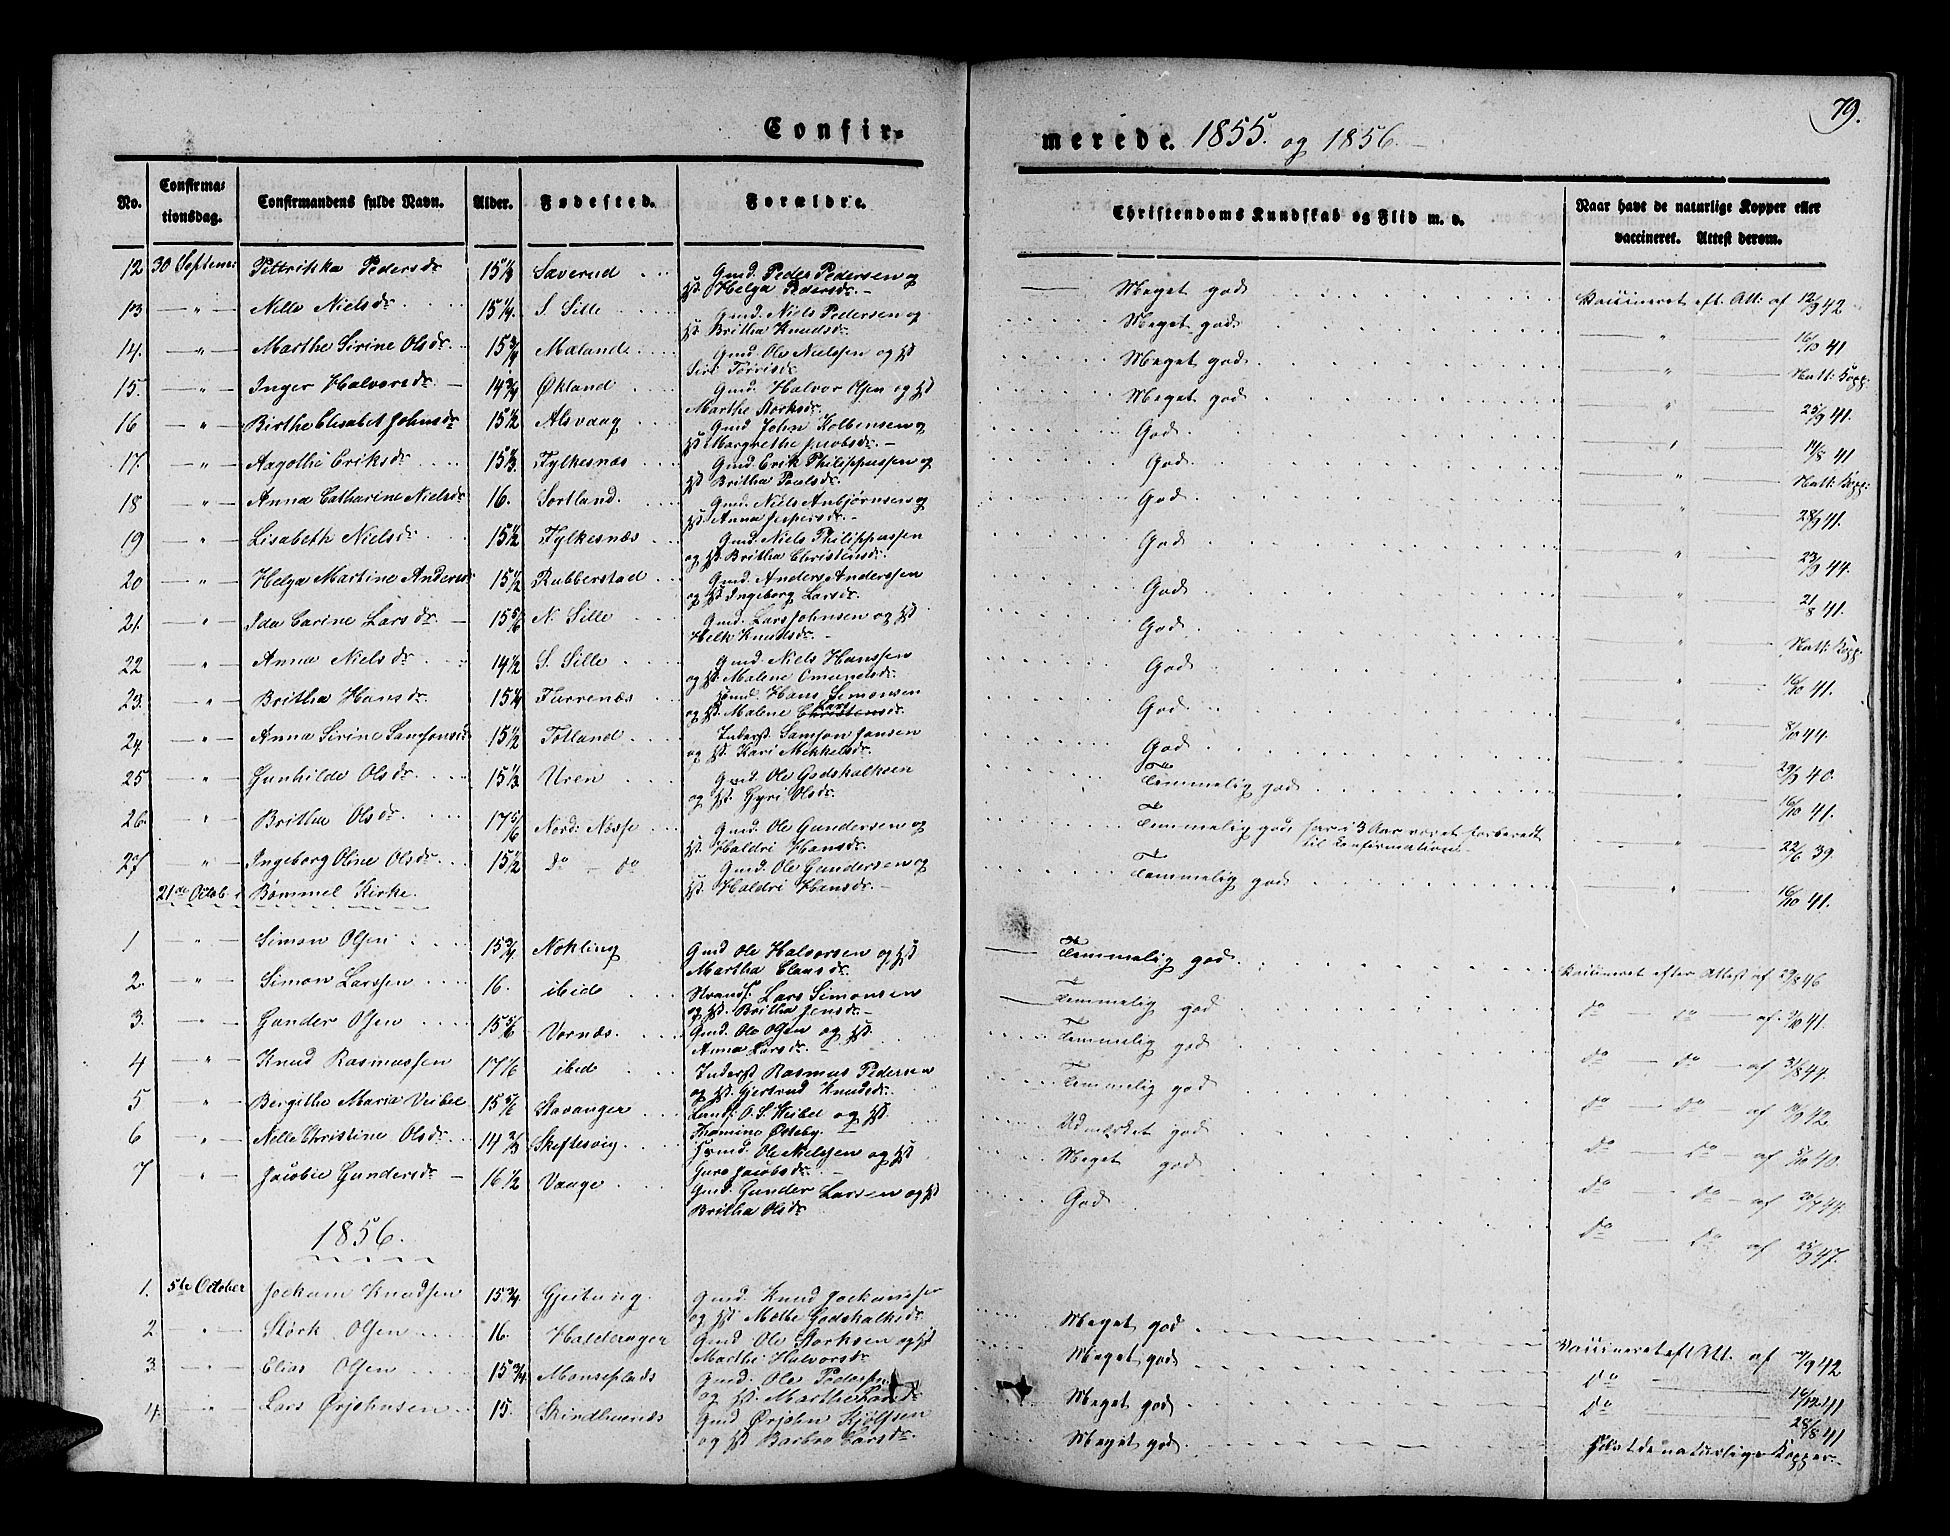 79.
Confir-
merede. 1855. og 1856.
No. Confirma-
tionsdag. Confirmandens fulde Navn. Alder. Fødested. Forældre. Christendoms Kundskab og Flid m. v. Naar havt de naturlige Kopper eller
vaccineret. Attest derom.
12 30 Septemr Pettrikka Pedersdr 15 1/3 Saverud Gmd. Peder Pedersen og
Hst. Helga Pedersdr. Meget god Vaccineret eft. Att. af 12/9 42
13 — " — Nelle Nielsdr 15 1/4. S. Sille Gmd. Niels Pedersen og
Hst. Britha Knudsdr. Meget god " 16/10 41
14. — " — Marthe Sirine Olsdr. 15 3/4 Mæland Gmd. Ole Nielssen og Hst
Siri Torrisdr Meget god " Natt: Kopp:
15. — " — Inger Halvorsdr — 14 3/4 Økland Gmd. Halvor Olsen og Hst
Marthe Storksdr. Meget god " 25/9 41.
16 — " — Birthe Elisabet Johnsdr 15 1/2 Alsvaag Gmd John Kolbensen og
Hst Margrethe Jacobsdr. — God. " 14/8 41
17. — " — Aagothe Eriksdr 15 1/3. Fylkesnæs Gmd. Erik Philippussen og
Hst. Britha Poulsdr. God " Natt: Kopp:
18 — " — Anna Catharine Nielsdr 16. Sortland. Gmd. Niels Anbjørnsen og
Hst. Anna Jespersdr. — God " 28/9 41.
19 — " — Lisabeth Nielsdr 15 1/2 Fylkesnæs Gmd. Niels Philippussen
og Hst Britha Christensdr. God " 23/9 44.
20 — " — Helga Martine Andersdr 15 1/2 Rubbestad Gmd. Anders Anderssen
og Hst Ingeborg Larsdr. God " 21/8 41.
21. — " — Ida Carine Larsdr. — 15 5/6 N. Sille Gmd. Lars Johnsen og Hst
Helk Knudsdr. — God " Natt: Kopp:
22 — " — Anna Nielsdr 14 1/2 S. Sille Gmd. Niels Hanssen
og Hst. Malene Omundsdr. God " 16/10 41.
23. — " — Britha Hansdr. 15 1/4 Furrenæs Gmd. Hans Simonsen
og Hst. Malene Christensdr. God " 8/10 44.
24 — " — Anna Sirine Samsonsdr 15 1/2 Totland Inderst Samson Jansen
og Hst. Kari Mikkelsdr. God " 29/9 40.
25 — " — Gunhilde Olsdr. 15 1/3 Uren Gmd. Ole Godskalksen
og Hst. Gyri Olsdr. Temmelig god " 16/10 41.
26. — " — Britha Olsdr. 17 5/6 Nord: Næsse Gmd. Ole Gundersen og
Hst Haldri Hansdr. Temmelig god, har i 3 Aar været forberedt
til Confirmationen " 22/6 39.
27 — " — Ingeborg Oline Olsdr. 15 1/2 do — do Gmd. Ole Gundersen og
Hst. Haldri Hansdr. — Temmelig god " 16/10 41.
21de Octobr Bømmel Kirke.
1 — " — Simon Olsen 15 3/4 Nokling Gmd Ole Halvorsen og Hst
Martha Clausdr. Temmelig god. Vaccineret efter Attest af 29/8 46
2. — " — Simon Larssen 16. ibid Strands. Lars Simonsen
og Hst. Britha Jensdr. — Temmelig god do — do — af 41.
3. — " — Gunder Olsen 15 5/6 Vornæs. Gmd. Ole Olsen og Hst.
Anna Larsdr. Temmelig god do — do — af 31/8 44.
4 — " — Knud Rasmussen 17 1/6 ibid Inderst Rasmus Pedersen
og Hst. Gjertrud Knudsdr. Temmelig god do — do — af 42.
5 — " — Bergithe Maria Veibel 15 5/6 Stavanger O. S. Veibel og Hst.
Udmærket god do — do — af 5/10 40.
6 — " — Nelle Christine Olsdr. 14 2/3 Skeftesvig. Gmd. Ole Nielssen og Hst
Guro Jacobsdr. — Meget god do — do — af 44.
7 — " — Jacobie Gundersdr — 16 1/2 Vaage Gmd. Gunder Larsen og Hst
Britha Olsdr. God do — do af 25/9 47.
1856.
1. 5te October Jockum Knudsen 15 3/4. Gjeitung. Gmd. Knud Jockumsen
og Hst Malene Godskalksdr. Meget god Vaccineret eft Att. af 42
2 — " — Størk Olsen 16. Halderager Gmd. Ole Storksen og Hst
Marthe Halvorsdr. Meget god do — 16/12 41
3 — " — Elias Olsen 15 3/4. Monseplads Gmd. Ole Pedersen
og Hst. Marthe Larsdr Meget god do — 28/8 41
4. — " — Lars Ørjohnsen 15. Gmd Ørjohn Kjølfsen
og Hst Barbro Larsdr. Meget god. Havt de naturlige Kopper—